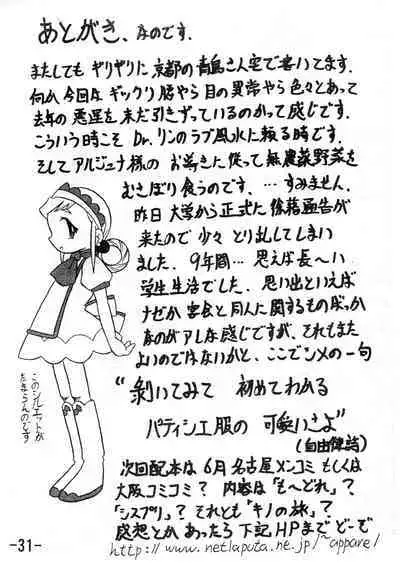 あとがき、なのです。
またしても ギリギリに 京都の青島さん空で書いてます。
何か今回は ギックリ腰やら 目の異常やら 色々とあって
去年の悪運を 未だ引きずっているのかって感じです。
こういう時こそ Dr.リンのラブ風水に頼る時です。
そしてアルジュナ様の お導きに従って 無農薬野菜を
むさぼり食うのです。…すみません。
昨日 大学から正式に除籍通告が
来たので 少々 とり乱してしまい
ました。9年間…思えば長〜い
学生生活でした。思い出といえば
ナゼか宴会と同人に関するものばっか
なのがアレな感じですが、それもまた
よいのではないかと、ここでシメの一句
“剥いてみて 初めてわかる
パティシエ服の 可愛いさよ”
(自由律詩)
次回配本は 6月名古屋メンコミ もしくは
大阪コミコミ? 内容は「も〜どれ」?
「シスプリ」? それとも「キノの旅」?
感想とか あったら 下記HPまで ど〜ぞ
http://www.netlaputa.ne.jp/~appare/
このシルエットが
たまらんのです
-31-